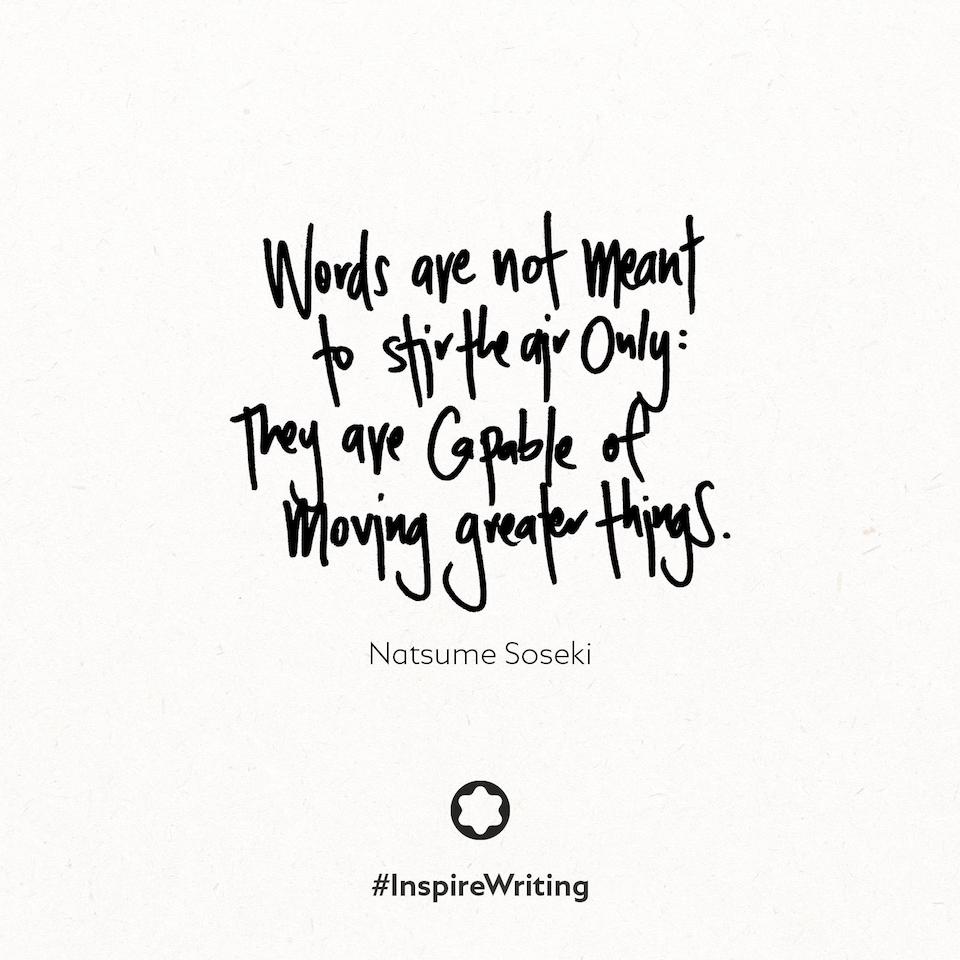 Words are not meant
to stir the air Only:
They are Capable of
Moving greater things.
Natsume Soseki
#InspireWriting